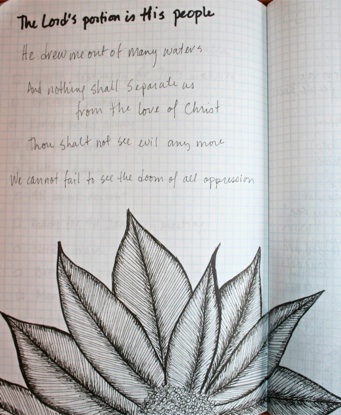 The Lord's portion is His people
He drew me out of many waters
And nothing shall separate us
from the love of Christ
Thou shalt not see evil any more
We cannot fail to see the doom of all oppression